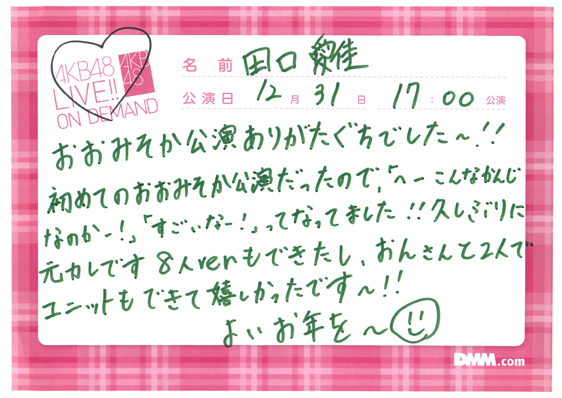 AKB48
LIVE!!
ON DEMAND
AKB
48
名前 田口 愛佳
公演日 12月31日 17:00公演
おおみそか公演ありがたぐちでした〜!!
初めてのおおみそか公演だったので、「へーこんなかんじ
なのかー!」「すごいなー!」ってなってました!!久しぶりに
元カレです8人verもできたし、おんさんと2人で
ユニットもできて嬉しかったです〜!!
よいお年を〜
DMM.com